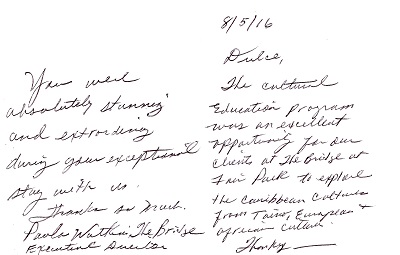 8/5/16
Dulce,
The cultural
Education program
was an excellent
opportunity for our
clients at The Bridge at
Fair Park to explore
the Caribbean Cultures
from Taino, European &
african culture.
Thanks
You were
absolutely stunning
and extrordinary
during your exceptional
stay with us.
Thanks so much.
Paula Watkins, The Bridge
Executive Director